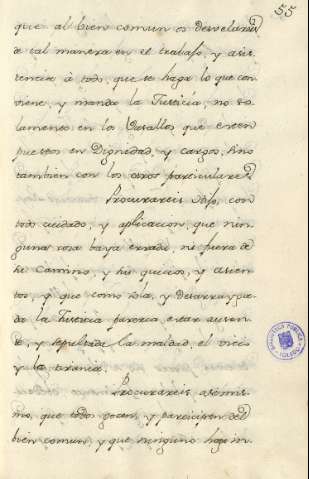 55
que al bien comun os desvelareis
de tal manera en el trabajo, y asis
tencia à todo, que se haga lo que con
viene, y manda la Justicia, no so
lamente en los Vasallos que esten
puestos en Dignidad, y cargos, sino
tambien con los otros particulares
Procurareis Hijo, con
todo cuidado, y aplicacion, que nin
guna cosa baya errada, ni fuera de
su camino, y sus quicios, y asien
tos, y que como sola, y desarrayga
da la Justicia parezca estar ausen
te, y sepultada la maldad, el vicio
y la tirania.
Procurareis asimis
mo, que todos gocen, y participen del
bien comun, y que ninguno haga in
BIBLIOTECA PUBLICA
TOLEDO